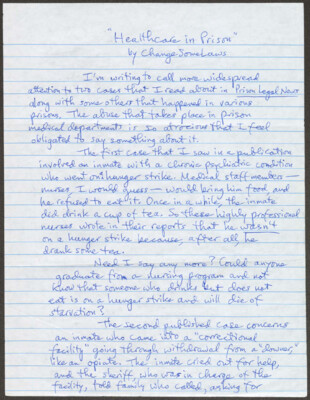 "Healthcare in Prison"
by ChangeSomeLaws
I'm writing to call more widespread
attention to two cases that I read about in Prison Legal News
along with some others that happened in various
prisons. The abuse that takes place in prison
medical departments is so atrocious that I feel
obligated to say something about it.
The first case that I saw in a publication
involved an inmate with a chronic psychiatric condition
who went on hunger strike. Medical staff members—
nurses, I would guess—would bring him food, and
he refused to eat it. Once in a while, the inmate
did drink a cup of tea. So these highly professional
nurses wrote in their reports that he wasn't
on a hunger strike because, after all he
drank some tea.
Need I say any more? Could anyone
graduate from a nursing program and not
know that someone who drinks but does not
eat is on a hunger strike and will die of
starvation?
The second published case concerns
an inmate who came into a "correctional
facility" going through withdrawal from a "downer,"
like an opiate. The inmate cried out for help,
and the sheriff, who was in charge of the
facility, told family who called, asking for